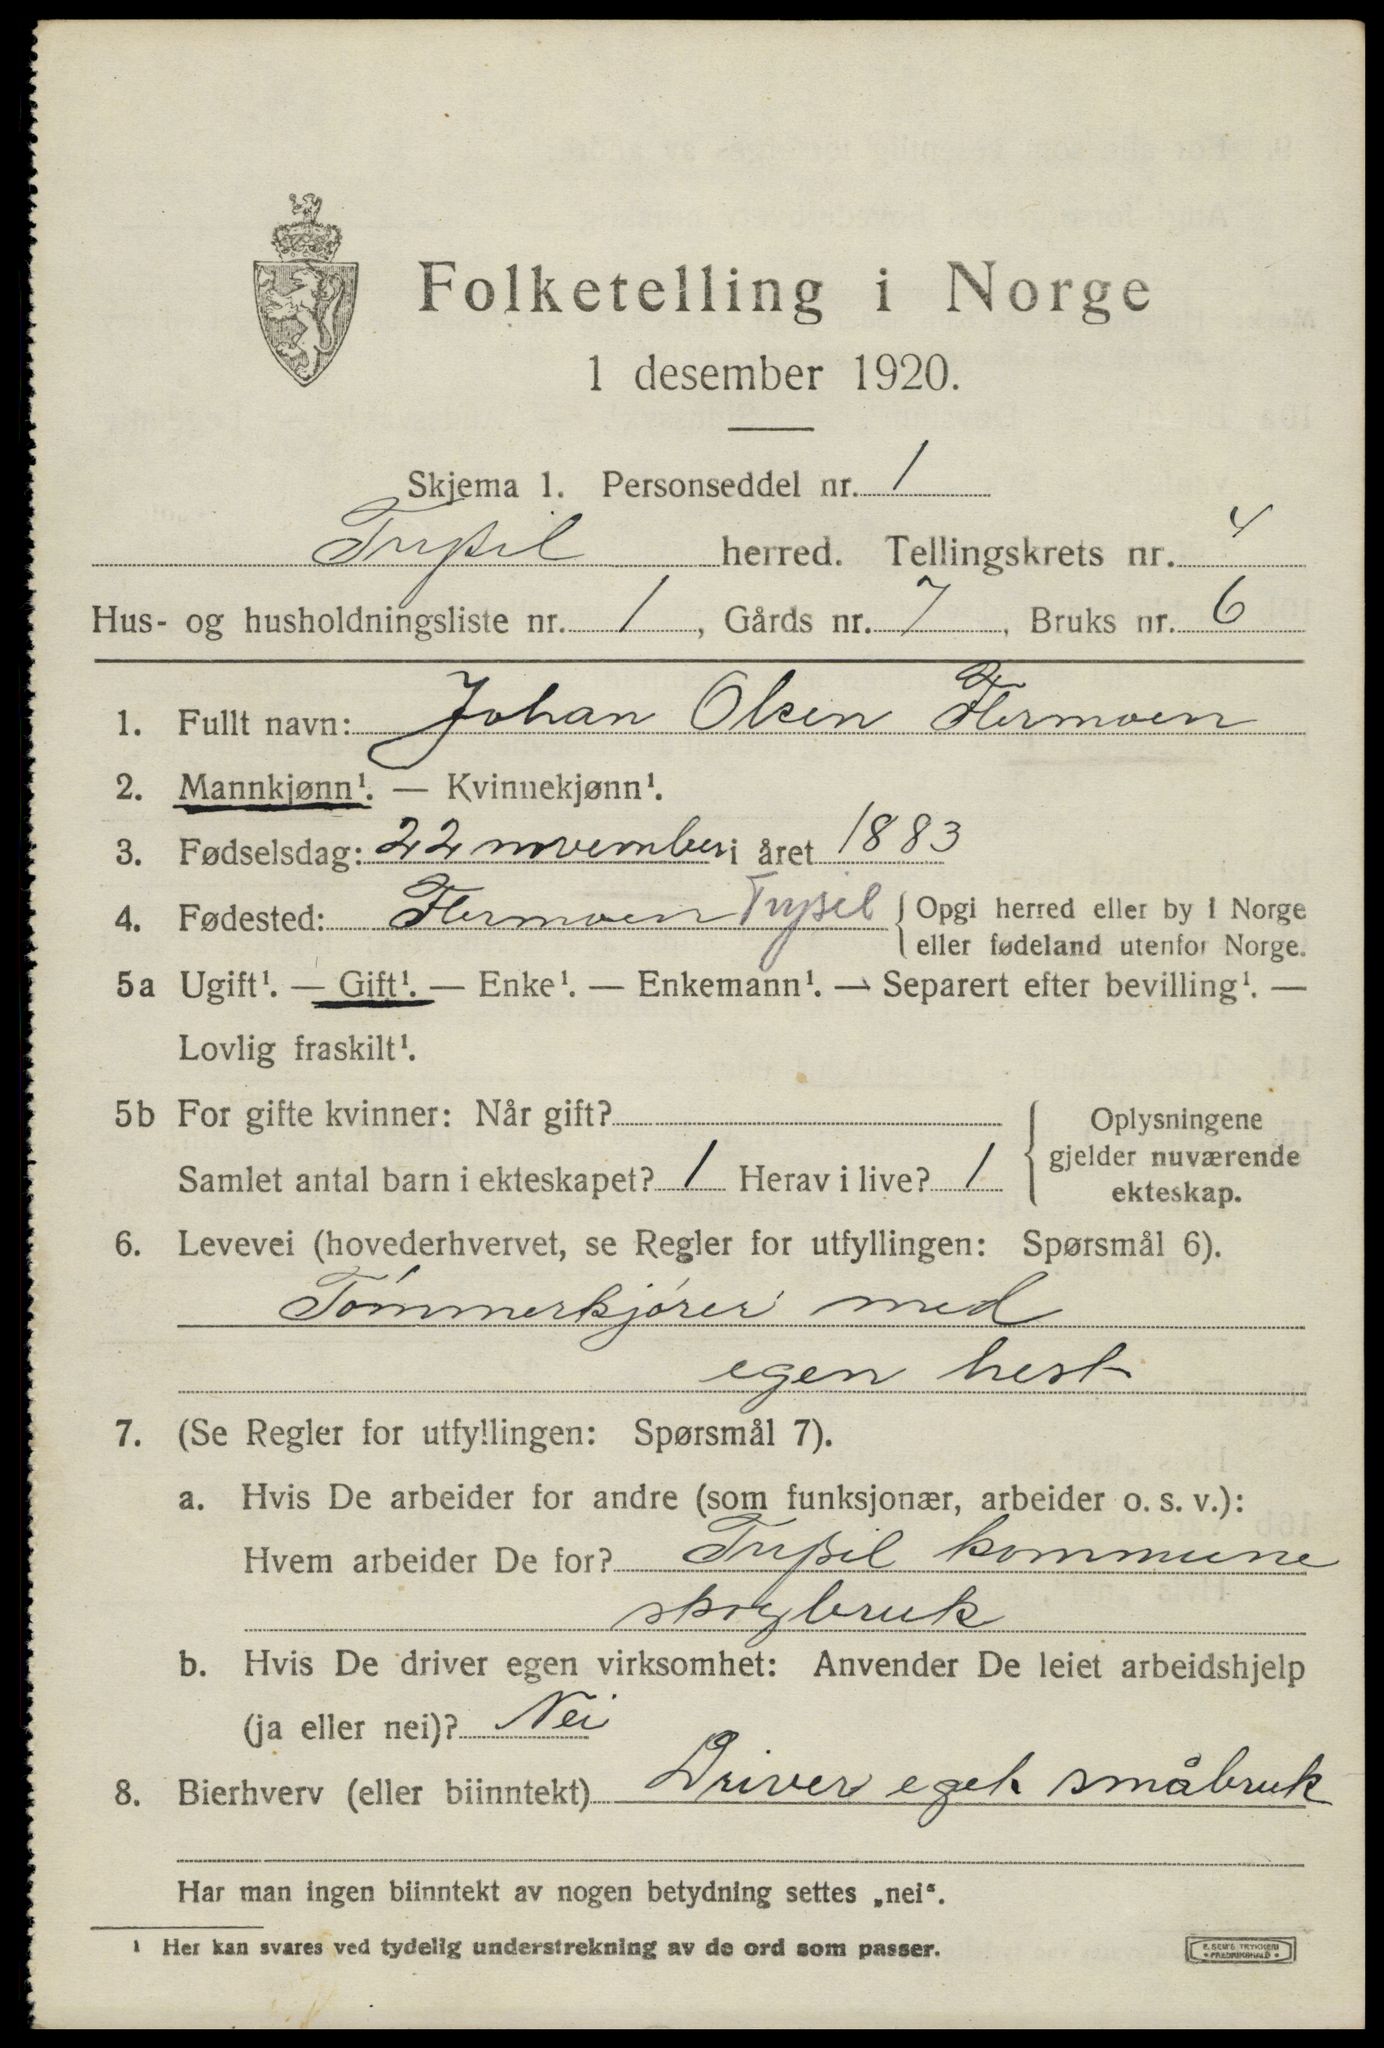 Folketelling i Norge
1 desember 1920.
Skjema 1. Personseddel nr. 1
Tryßil herred. Tellingskrets nr. 4
Hus- og husholdningsliste nr. 1, Gårds nr. 7, Bruks nr. 6
1. Fullt navn: Johan Olsen Flermoen
2. Mannkjønn¹. — Kvinnekjønn¹.
3. Fødselsdag: 22 november i året 1883
4. Fødested: Flermoen Trysil { Opgi herred eller by i Norge
eller fødeland utenfor Norge.
5a Ugift¹. — Gift¹. — Enke¹. — Enkemann¹. — Separert efter bevilling¹. —
Lovlig fraskilt¹.
5b For gifte kvinner: Når gift?
Samlet antal barn i ekteskapet? 1 Herav i live? 1
{ Oplysningene
gjelder nuværende
ekteskap.
6. Levevei (hovederhvervet, se Regler for utfyllingen: Spørsmål 6).
Tómmerkjórer med
egen hest
7. (Se Regler for utfyllingen: Spørsmål 7).
a. Hvis De arbeider for andre (som funksjonær, arbeider o. s. v.):
Hvem arbeider De for? Tryßil kommune
skogbruk
b. Hvis De driver egen virksomhet: Anvender De leiet arbeidshjelp
(ja eller nei)? Nei
8. Bierhverv (eller biinntekt) Driver eget småbruk
Har man ingen biinntekt av nogen betydning settes „nei“.
¹ Her kan svares ved tydelig understrekning av de ord som passer.
E. SEM'S TRYKKERI
• FREDRIKSHALD •